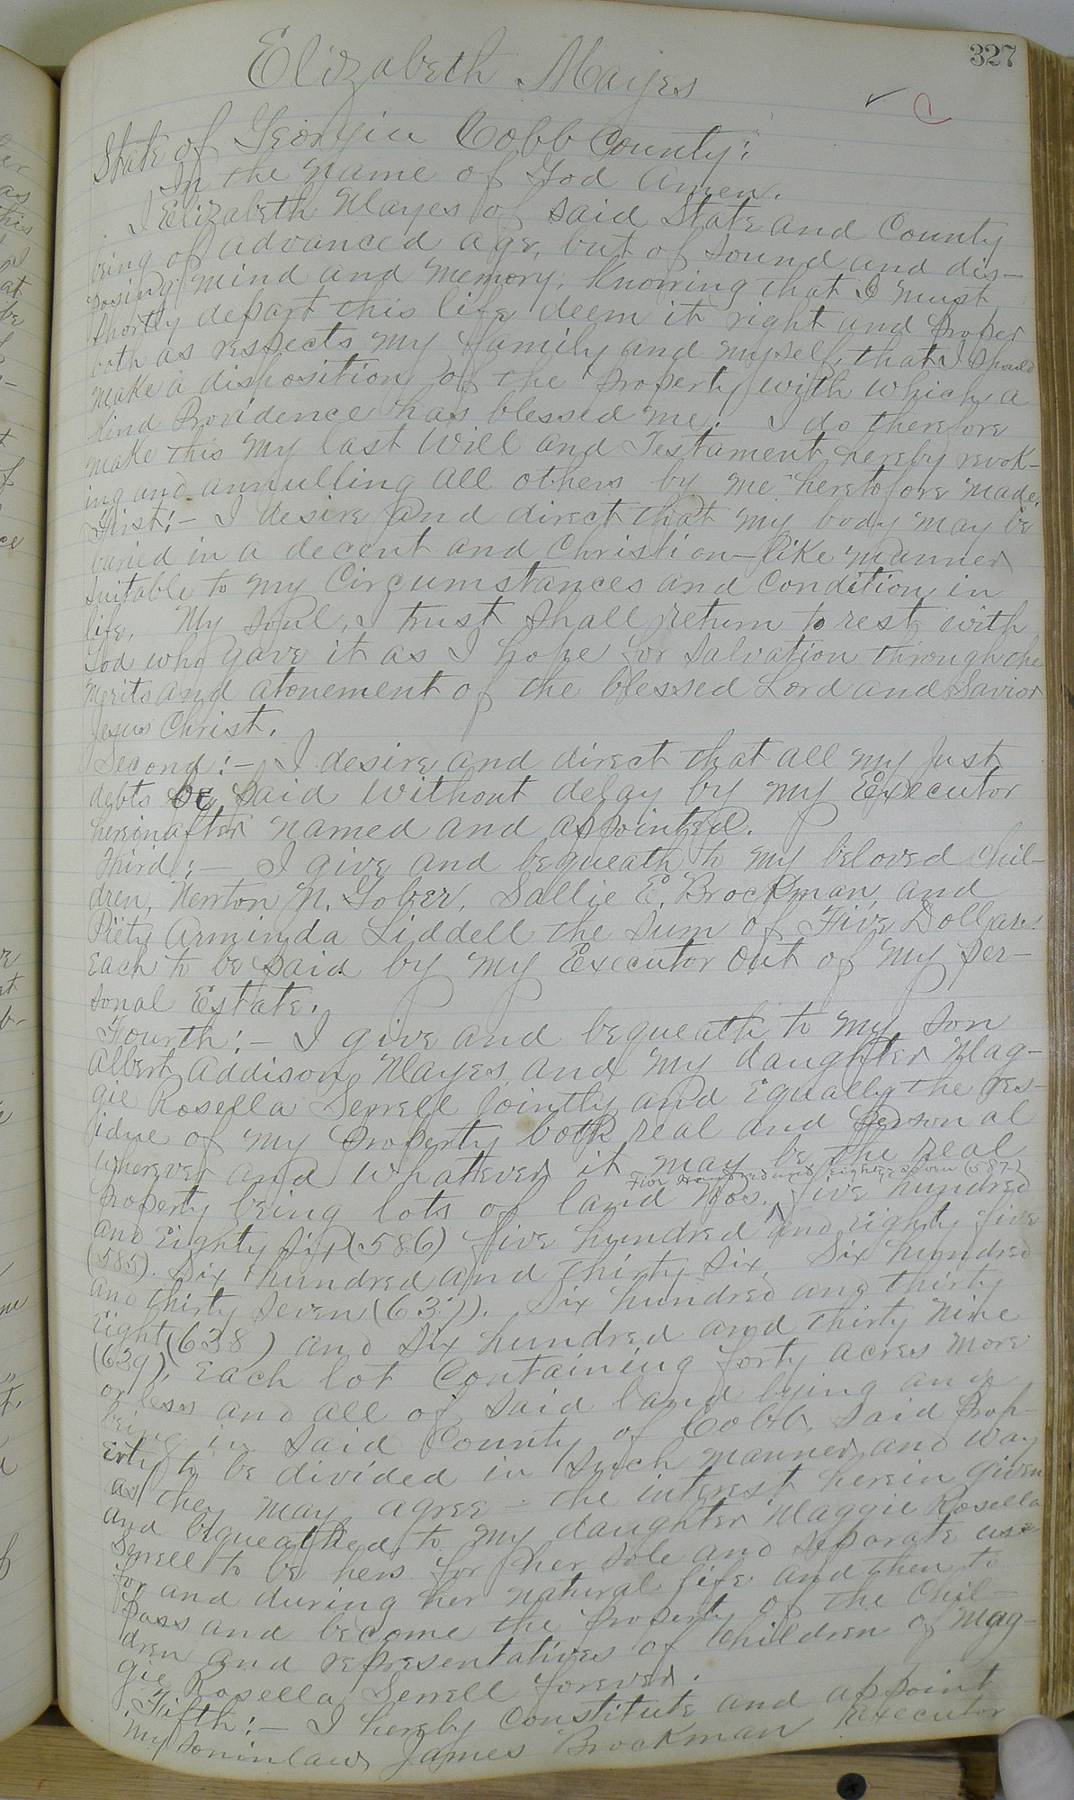 327
Elizabeth Mayes
State of Georgia Cobb County:
In the name of God Amen.
I Elizabeth Mayes of said State and County
being of advanced age, but of sound and dis-
posing mind and memory, knowing that I must
shortly depart this life deem it right and proper
both as respects my family and myself, that I should
make a disposition of the property with which a
kind Providence has blessed me: I do therefore
make this my last will and Testament hereby revok-
ing and annulling all others by me heretofore made.
First:- I desire and direct that my body may be
buried in a decent and Christion-like manner
suitable to my Circumstances and condition in
life, My soul, I trust shall return to rest with
God who gave it as I hope for salvation through the
merits and atonement of the blessed Lord and Savior
Jesus Christ.
Second:- I desire and direct that all my just
debts be paid without delay by my Executor
hereinafter named and appointed.
Third:- I give and bequeath to my beloved chil-
dren, Newton N. Gober, Sallie E. Brockman, and
Piety Arminda Liddell the sum of Five Dollars
each to be paid by my Executor out of my per-
sonal Estate.
Fourth:- I give and bequeath to my son
Albert Addison Mayes and my daughter Mag-
gie Rosella Serrell jointly and Equally the res-
idue of my property both real and personal
wherever and whatever it may be the real
Five hundred and eighty seven (587)
property being lots of land Nos. ^ five hundred
and Eighty six (586) five hundred and eighty five
(585). Six hundred and thirty six, Six hundred
and thirty seven (637). Six hundred and thirty
Eight (638) and Six hundred and thirty nine
(639), Each lot Containing forty acres more
or less and all of said land lying and
being in said County of Cobb, said prop-
erty to be divided in such manner and way
as they may agree - the interest herein given
and bequeathed to my daughter Maggie Rosella
Serrell to be hers for her sole and separate use
for and during her natural life and then to
pass and become the property of the chil-
dren and representatives of children of Mag-
gie Rosella Serrell forever.
Fifth:- I hereby constitute and appoint
my soninlaw James Brockman Executor